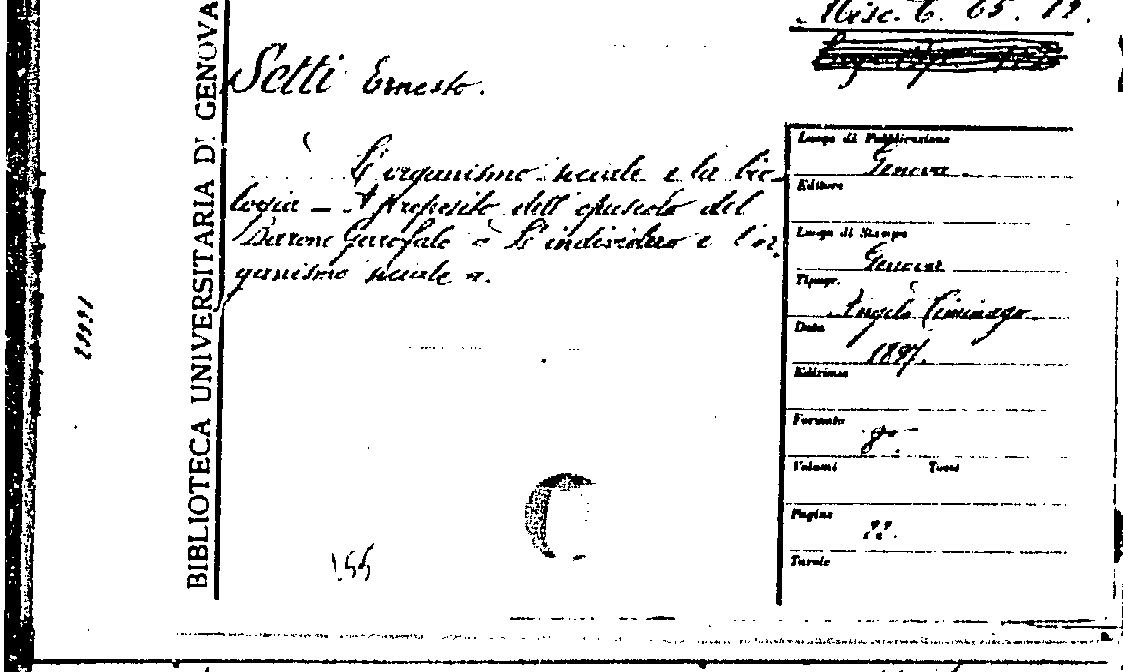 Misc. C. 65. 12.
BIBLIOTECA UNIVERSITARIA DI GENOVA
Setti Ernesto.
L'organismo sociale e la bio-
logia — A proposito dell'opuscolo del
Barone Garofalo « L'individuo e l'or-
ganismo sociale ».
Luogo di Pubblicazione
Genova.
Editore
Luogo di Stampa
Genova
Tipogr.
Angelo Ciminago
Data
1897.
Edizione
Formato
8°.
Volumi Tomi
Pagine
22.
Tavole